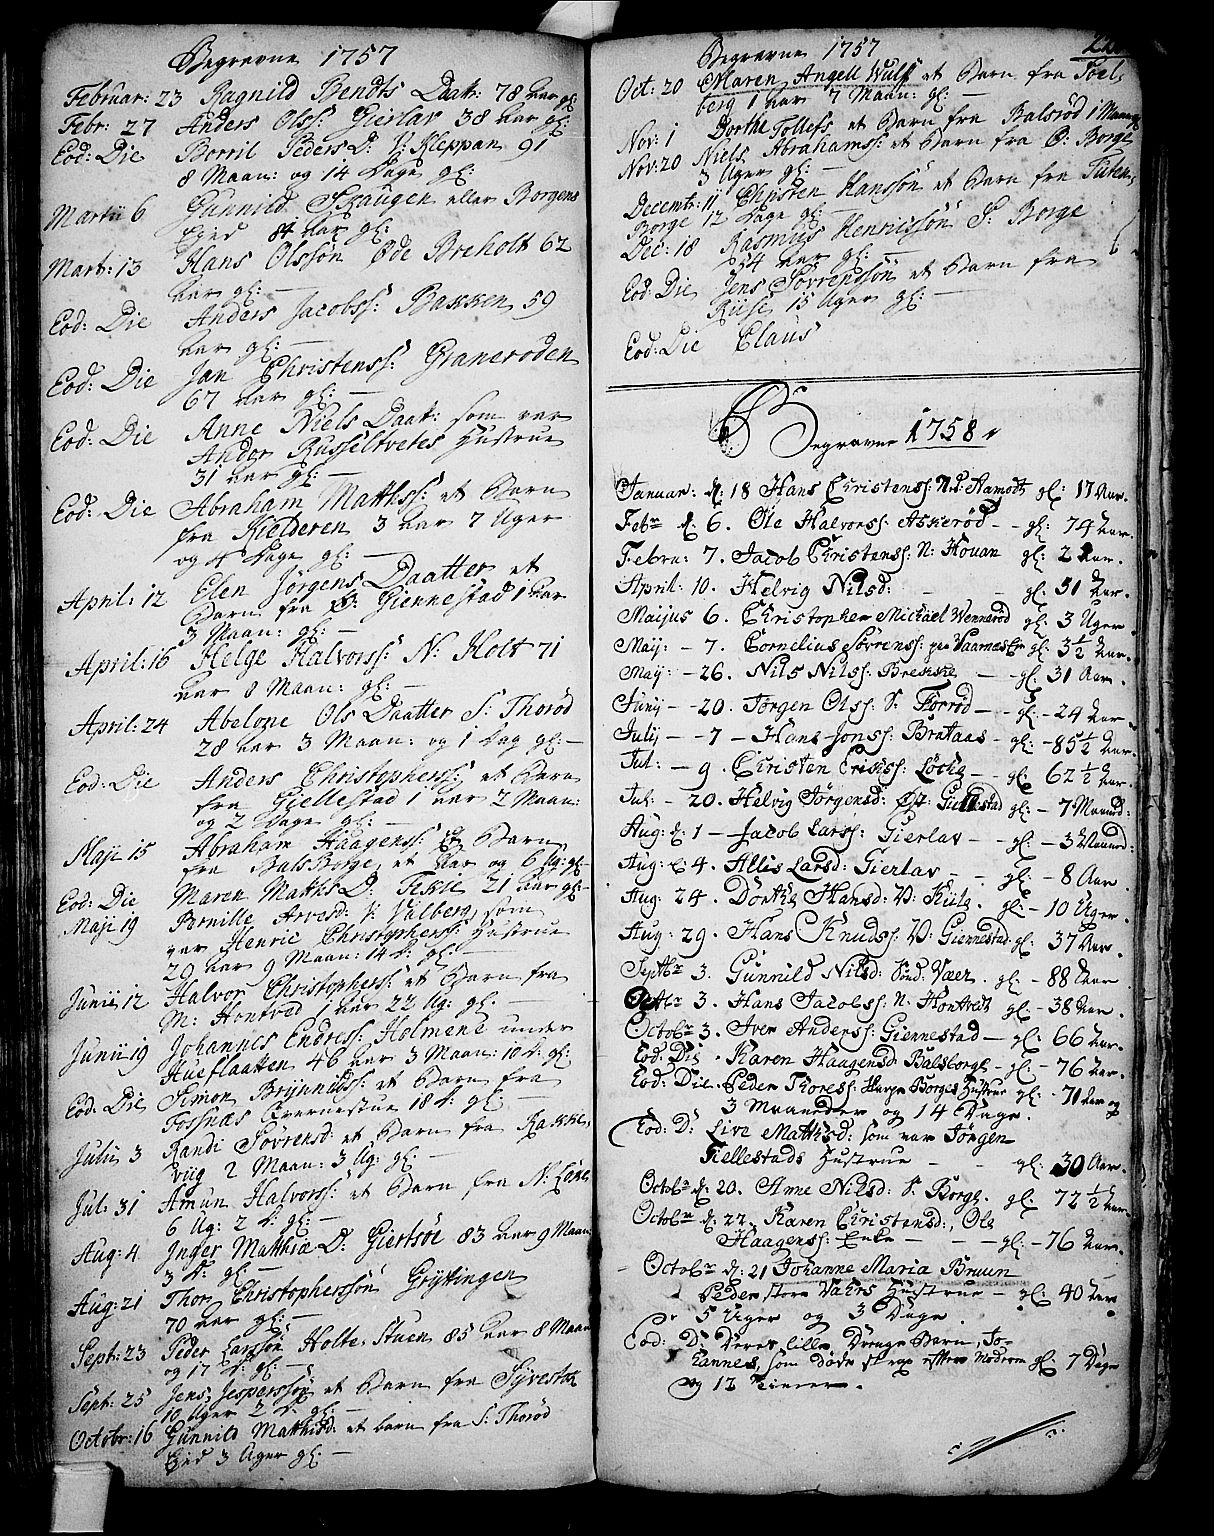 Begravne 1757
Februar: 23 Ragnild Bendts Daat: 78 aar gl:
Febr: 27 Anders Ols: Gierlav 38 aar gl:
Eod: Die Borril Peders D: V: Kleppan 91
8 Maan: og 14 Dage gl:
Martii 6 Gunnild Skaugen eller Borgens
Eied 84 aar gl:
Mart: 13 Hans Olssøn Øde Breholt 62
aar gl:
Eod: Die Anders Jacobss: Bakken 59
aar gl:
Eod: Die Jan Christenss: Graneroden
67 aar gl:
Eod: Die Anne Niels Daat: som var
Anders Russeltvetes Hustrue
31 aar gl:
Eod: Die Abraham Matthss: et Barn
fra Kielderen 3 aar 7 Uger
og 4 Dage gl:
April: 12 Elen Jørgens Daatter et
Barn fra Ø: Giennestad 1 aar
3 Maan: gl:
April: 16 Helge Halvorss: N: Holt 71
aar 8 Maan: gl:
April: 24 Abelone Ols Daatter S: Thorød
28 aar 3 Maan: og 1 Dag gl:
Eod: Die Anders Christopherss: et Barn
fra Giellestad 1 aar 2 Maan:
og 2 Dage gl:
Maji 15 Abraham Haagenss: et Barn
fra BalsBorge et aar og 6 Ug: gl:
Eod: Die Maren Matths D: Fekie 21 aar gl:
Maji 19 Pernille Arvesd: V: Valberg, som
var Henric Christopherss: Hustrue
29 aar 9 Maan: 14 D: gl:
Junii 12 Halvor Christopherss: et Barn fra
M: Hontved 1 aar 22 Ug: gl:
Junii 19 Johannes Endress: Holmene under
Hueflaatten 46 aar 3 Maan: 10 D: gl:
Eod: Die Simon Brynnilss: et Barn fra
Fossnæs Qvernestue 18 D: gl:
Julii 3 Randi Sövrensd: et Barn fra Rakke,
viig 2 Maan: 3 Ug: gl:
Jul: 31 Amun Halvorss: et Barn fra N: Løke
6 Ug: 2 D: gl:
Aug: 4 Inger Matthiæ D: Giertsöe 83 aar 9 Maan:
3 D: gl:
Aug: 21 Thor Christopherssøn Gryttingen
70 aar gl:
Sept: 23 Peder Larssøn Holte: Stuen 85 aar 8 Maan
og 17 D: gl:
Sept: 25 Jens Jesperssøn et Barn fra
10 Uger 2 D: gl:
Octobr: 16 Gunnild Matthisd: et barn fra S: Thoröd
Eied 3 Uger gl:
Begravne 1757
Oct: 20 Maren Angell Wulf et Barn fra Soel,
berg 1 aar 7 Maan: gl:
Nov: 1 Dorthe Tollefs et Barn fra Balsrød 1 Maan:
Nov: 20 Niels Abrahamss: et Barn fra Ø: Borge
3 Uger gl:
Decemb: 11 Christen Hanssøn et Barn fra
Borge 12 Dage gl:
Dec: 18 Rasmus Henricssøn S: Borge
54 aar gl:
Eod: Die Jens Sövrenssøn et Barn fra
Riise 15 Uger gl:
Eod: Die Claus
Begravne 1758
Januar: d: 18 Hans Christenss: N: Aamodt gl: 17 Aar.
Febr d: 6. Ole Halvorss: Askerød gl: 74 Aar.
Februa: 7. Jacob Christenss: N: Houan gl: 2 Aar.
April: 10. Helvig Nilsd: gl: 51 Aar.
Maijus 6. Christopher Michael Wennerød gl: 3 Uger
Maij: 7. Cornelius Sövrenss: gl: 3½ Aar.
Maij: 26. Nils Nilss: Brekke gl: 31 Aar.
Junij 20. Jørgen Olss: S: Torrød gl: 24 Aar
Julij 7 Hans Jonss: Brataas gl: 85½ Aar.
Jul: 9. Christen Erikss: Løcke gl: 62½ Aar.
Jul: 20. Helvig Jörgensd: Øst: Giellestad gl: 7 Maaned:
Aug: d: 1 Jacob Larss: Gierlav gl: 3 Maaned:
Aug: d: 4. Allis Larsd: Gierlav gl: 8 Aar.
Aug: 24. Dorthe Hansd: V: Kiile. gl: 10 Uger.
Aug: 29. Hans Knuds: V: Giennestad gl: 37 Aar
Septbr 3. Gunnild Nilsd: Væer. gl: 88 Aar
Septbr 3. Hans Jacobss: N: Hontvedt gl: 38 Aar.
Octobr 3. Iver Anderss: Giennestad gl: 66 Aar.
Eod: Die. Karen Haagensd: Balsborge gl: 76 Aar.
Eod: Die. Peder Thoress: Borges Hustrue gl: 70 Aar og
3 Maaneder og 14 Dage.
Eod: D: Live Matthisd: som var Jörgen
Giellestads Hustrue gl: 30 Aar.
Octobr d: 20. Anne Nilsd: S: Borge. gl: 72½ Aar.
Octobr d: 22. Karen Christensd:, Ole
Haagenss: Enke gl: 76 Aar.
Octobr d: 21 Johanne Maria Bruun
Peder store Hustrue gl: 40 Aar
5 Uger og 3 Dage.
Eod: D: Deres lille Drenge Barn, Jo-
hannes, som døde strax efter Moderen gl: 7 Dage
og 12 Timer.